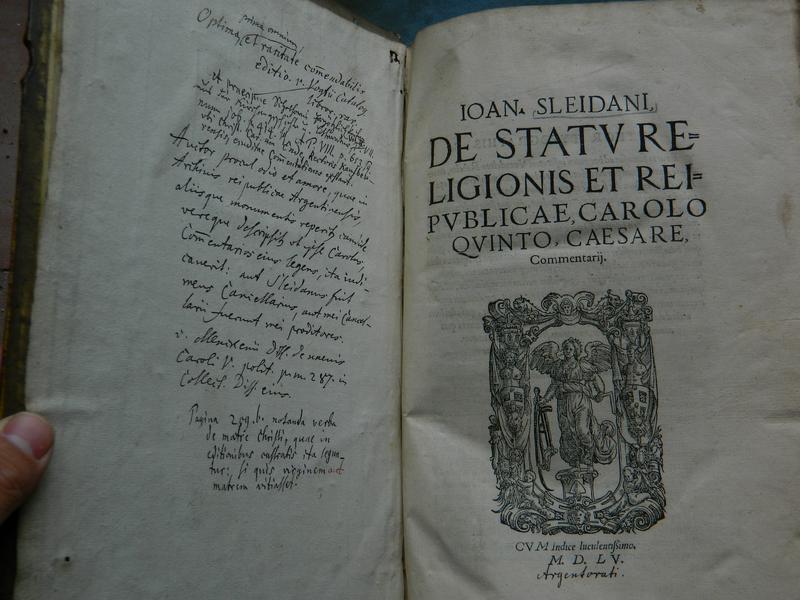 prima omnium
Optima, et raritate commendabilis
editio. v. Vogtii Catalog.
libror. rar.
et praecipue
P. VIII. p.
Autor procul odio et amore, quae in
Archivis reipublicae Argentinensis,
aliisque monumentis reperit, candide
vereque descripsit, ut ipse Carolus,
Commentarios eius legens, ita iudi-
caverit: aut Sleidanus fuit
meus Cancellarius, aut mei Cancel-
larii fuerunt mei proditores.
v. Menckenii diss. de naevis
Caroli V. polit. p. m. 287. in
Collect. Diss. eius.
Pagina 259. b. notanda verba
de matre Christi, quae in
editionibus castratis ita sequn-
tur: si quis virginem aut
matrem vitiasset.
IOAN. SLEIDANI,
DE STATV RE=
LIGIONIS ET REI=
PVBLICAE, CAROLO
QVINTO, CAESARE,
Commentarij.
CVM indice luculentissimo.
M. D. LV.
Argentorati.